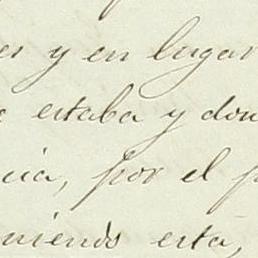 er y en lugar
e estaba y don
cia, por el p
niendo esta,